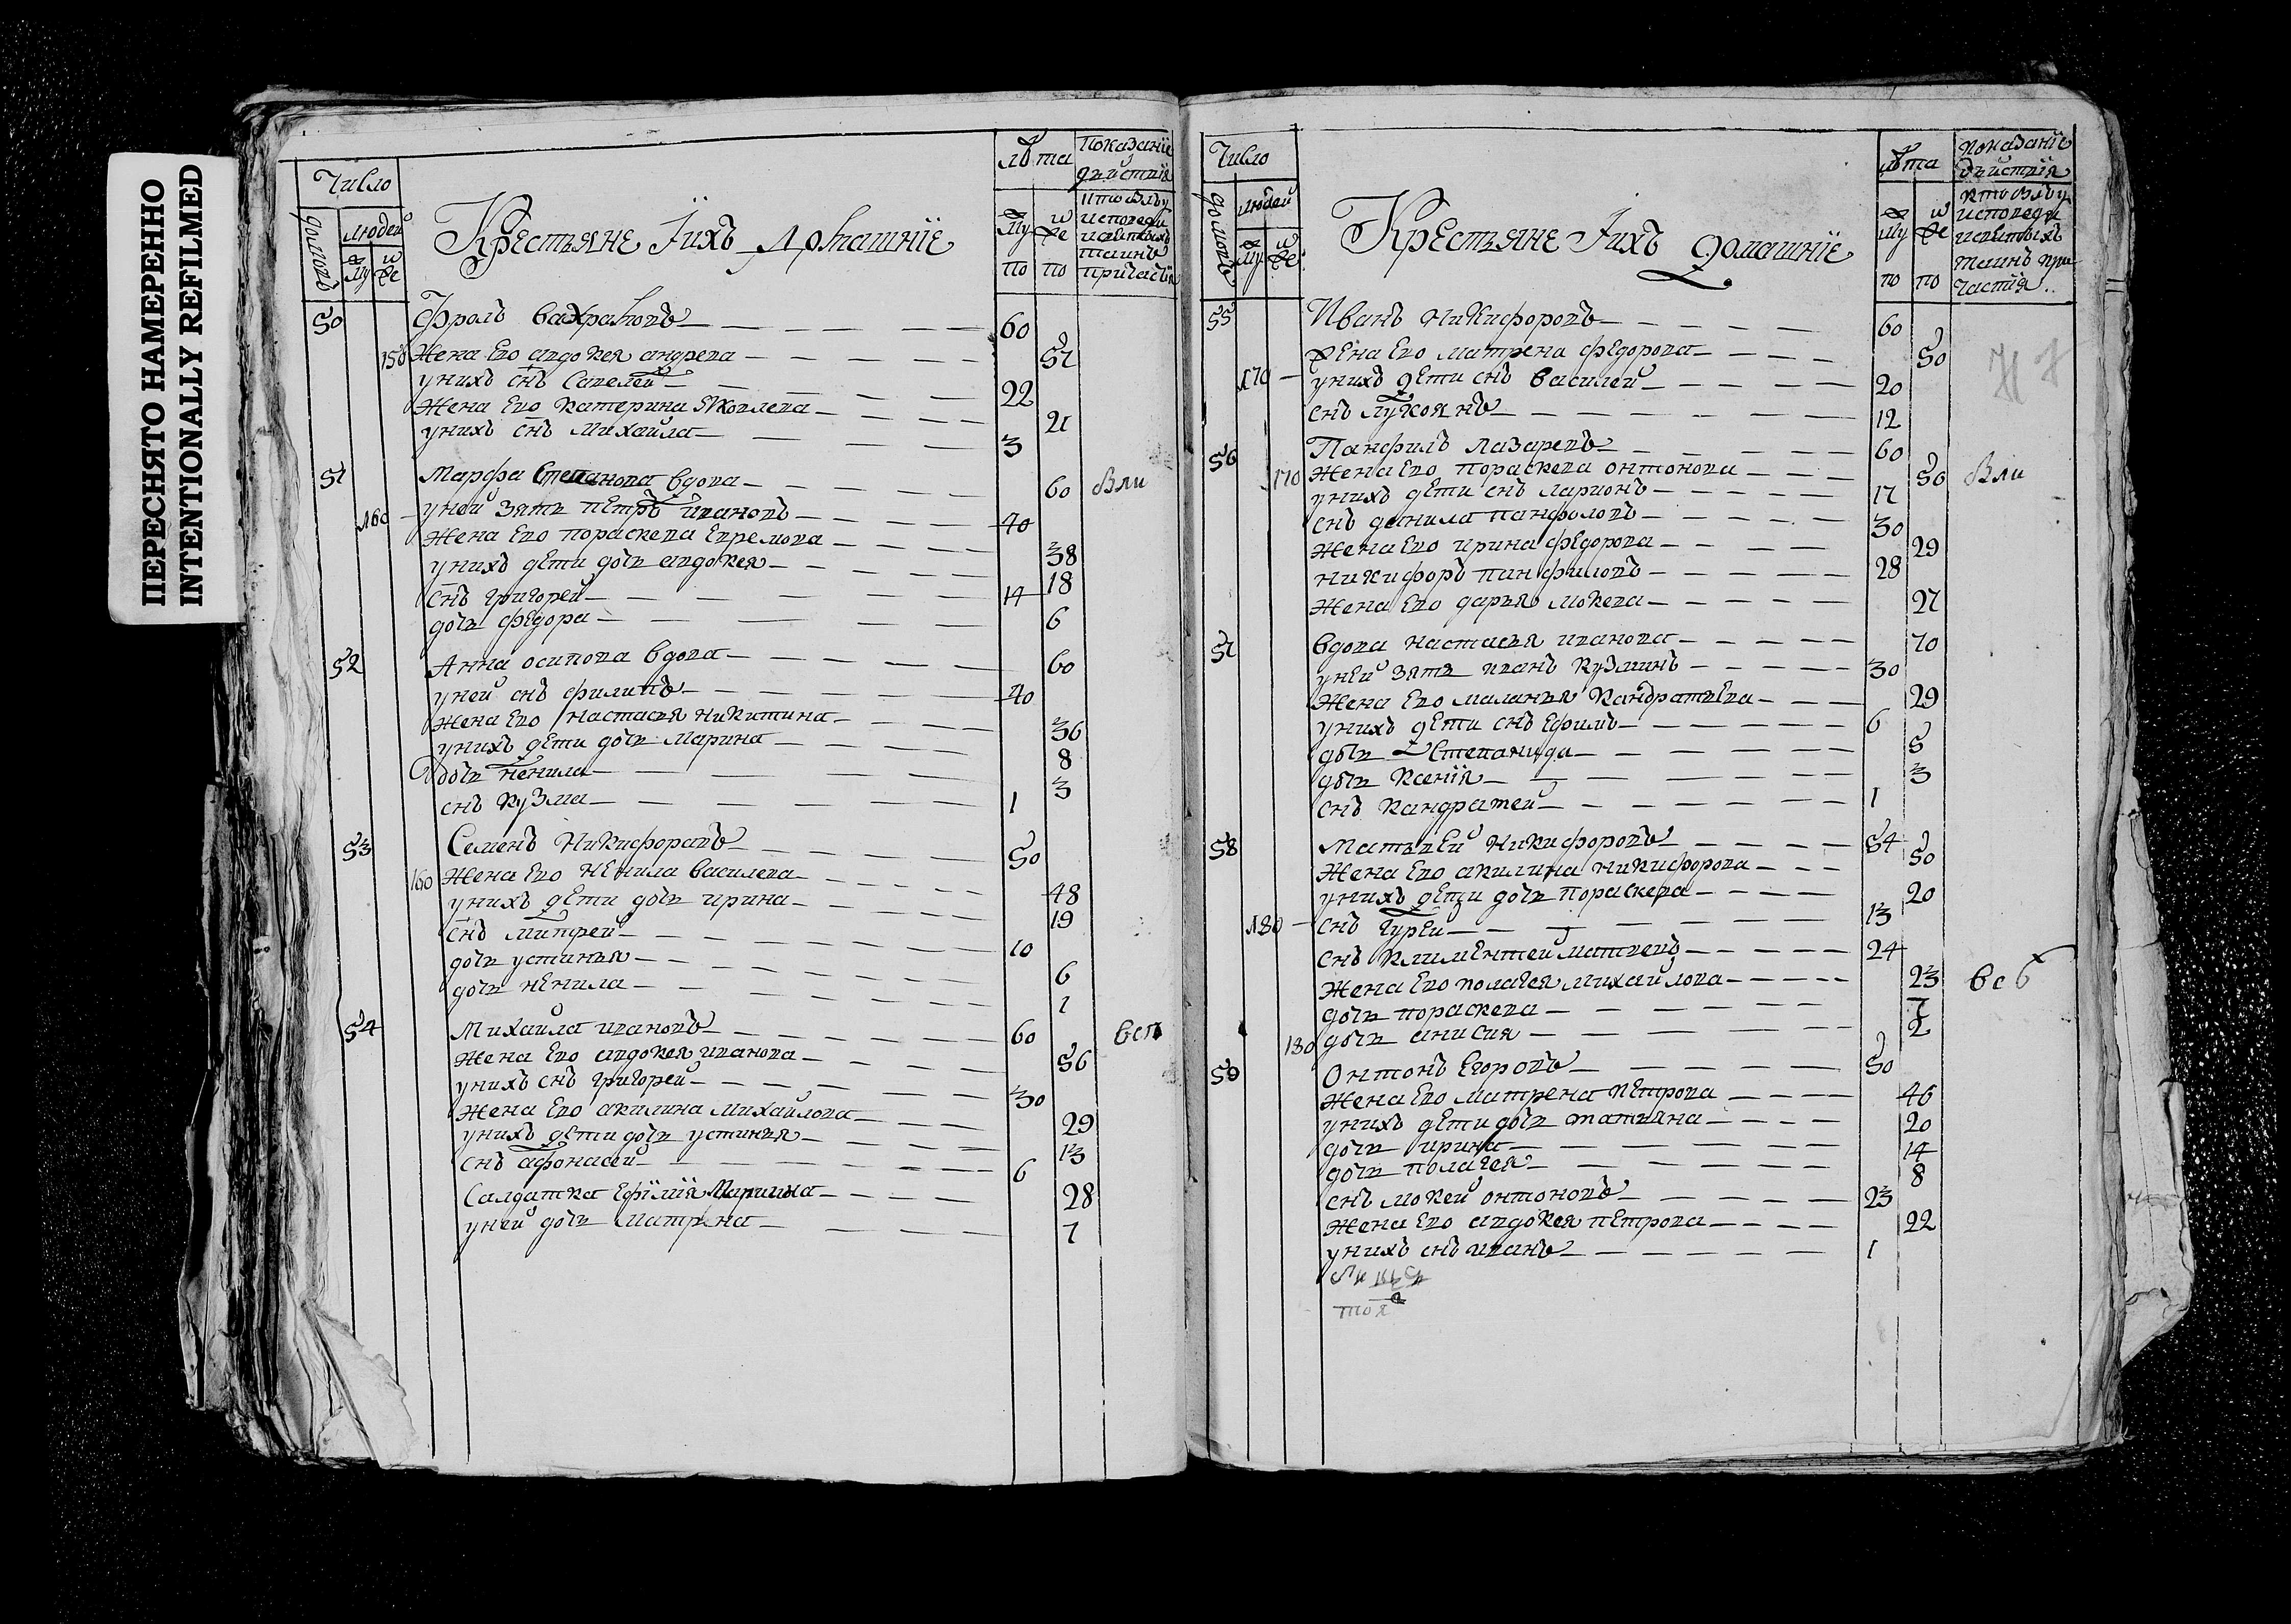 ПЕРЕСНЯТО НАМЕРЕННО
INTENTIONALLY REFILMED
Число
домовъ
людей
Му
же
Крестьяне Їихъ домашнїе
лѣта
Му по
же по
показанїе
дѣйствїя
кто былъ у
исповеди
исвятыхъ
таинъ
причастїя
50 Фролъ вахрамовъ 60
150 Жена Ево авдокея андрева 51
унихъ снъ Савелей 22
Жена Ево катерина яковлева 21
унихъ снъ Михаила 3
51 Марфа Степанова вдова 60 были
160 уней зять петръ ивановъ 40
Жена Ево пораскева Евремова 38
унихъ дети дочь авдокея 18
снъ григорей 14
дочь федора 6
52 Анна осипова вдова 60
уней снъ филипъ 40
Жена Ево настасья никитина 36
унихъ дети дочь марина 8
дочь ненила 3
снъ кузма 1
53 Семенъ Никифоравъ 50
160 Жена Ево ненила василева 48
унихъ дети дочь ирина 19
снъ митрей 10
дочь устинья 6
дочь ненила 1
54 Михаила ивановъ 60
Жена Ево авдокея иванова 56
унихъ снъ григорей 30
Жена Ево акилина михаилова 29
унихъ дети дочь устинья 13
снъ афонасей 6
Салдатка Ефїмїя Маркина 28
уней дочь матрена 7
Число
домовъ
людей
Му
же
Крестьяне Їихъ домашнїе
лѣта
Му по
же по
показанїе
дѣйствїя
кто былъ у
исповеди
исвятыхъ
таинъ при
частїя
55 Иванъ никифоровъ 60
Жена Ево матрена федорова 50
170 унихъ дети снъ василей 20
снъ лукоянъ 12
56 Панфилъ лазаревъ 60
170 Жена Ево пораскева онтонова 50 были
унихъ дети снъ ларионъ 17
снъ данила панфиловъ 30
Жена Ево ирина федорова 29
никифоръ панфиловъ 28
Жена Ево дарья мокева 27
57 вдова настасья иванова 70
уней зять иванъ кузминъ 30
Жена Ево маланья кандратьева 29
унихъ дети снъ ефимъ 6
дочь Степанида 5
дочь ксенїя 3
снъ кандратей 1
58 Матьвей никифоровъ 54
Жена Ево акилина никифорова 50
унихъ дети дочь пораскева 20
180 снъ гурей 13
снъ климентей матвевъ 24
Жена Ево полагея михайлова 23
дочь пораскева 7
180 дочь анисия 2
59 Онтонъ Егоровъ 50
Жена Ево матрена петрова 46
унихъ дети дочь татьяна 20
дочь ирина 14
дочь полагея 8
снъ мокей онтоновъ 23
Жена Ево авдокея петрова 22
унихъ снъ иванъ 1